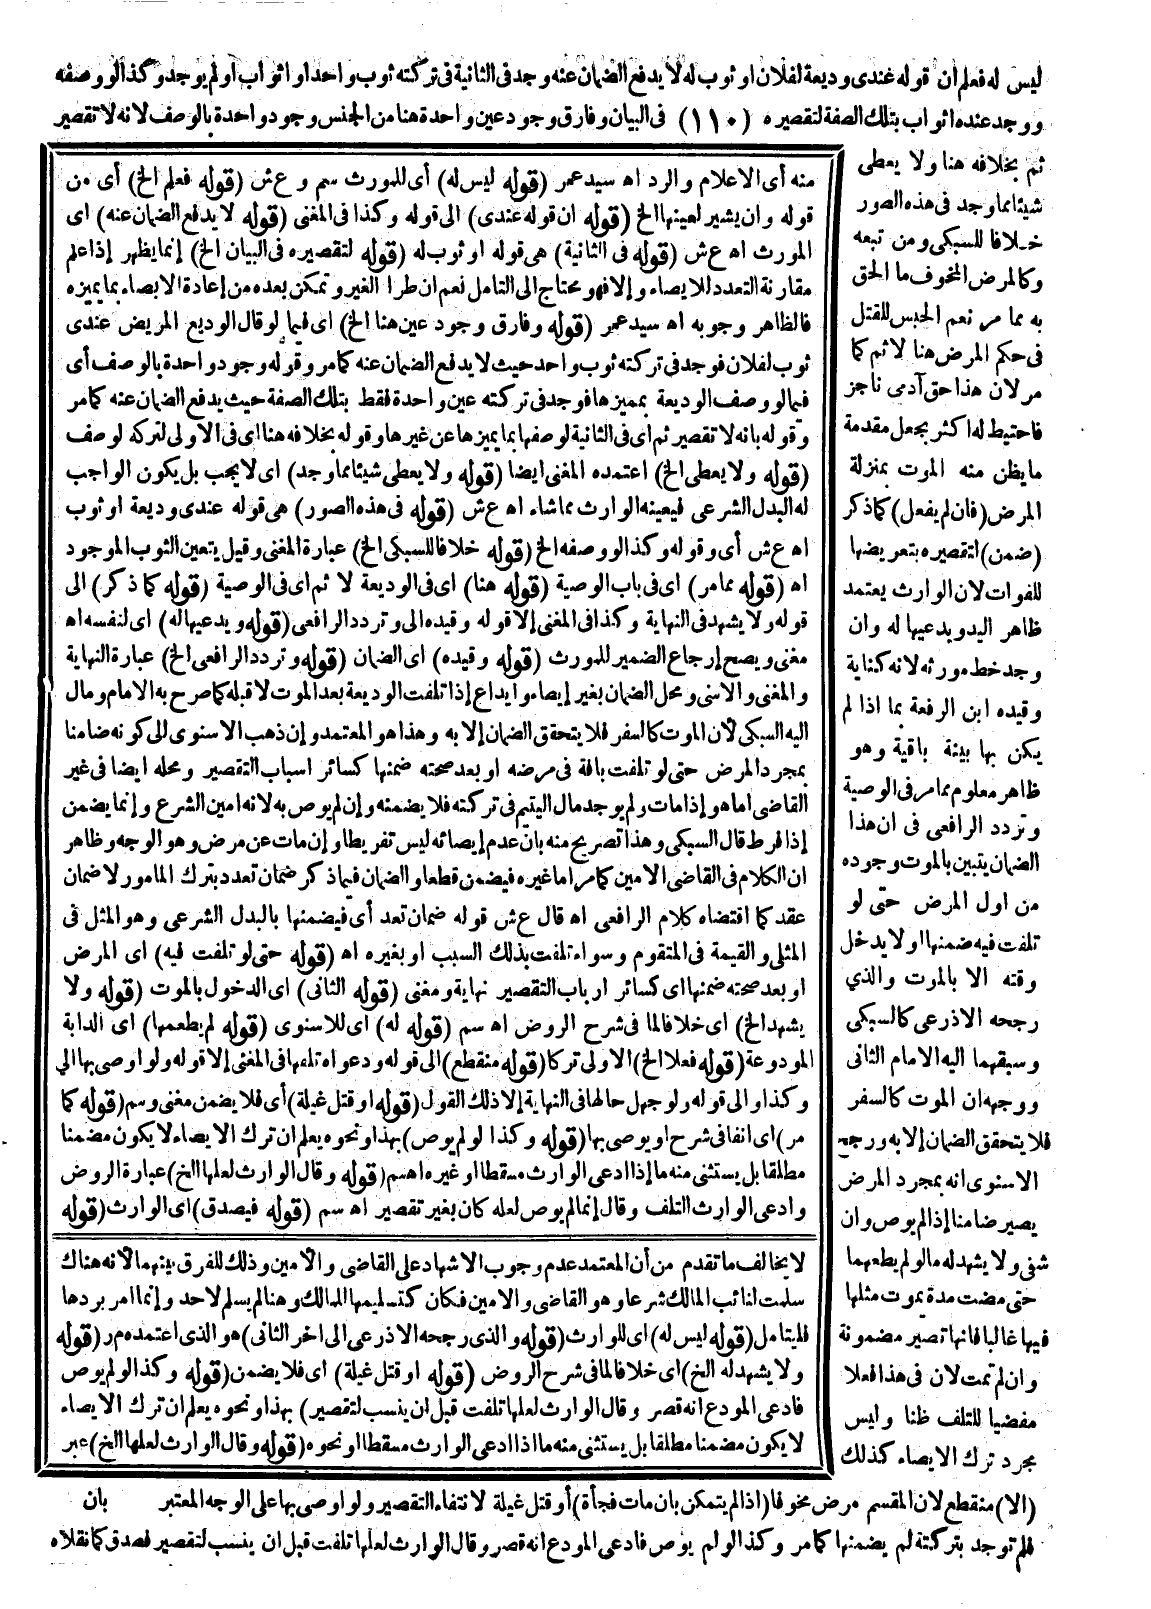 ليس له فعلم أن قوله عندى وديعة لفلان او ثوب له لا يدفع الضمان عنه وجد فى الثانية فى تركته ثوب واحد او اثواب أو لم يوجد وكذا لو وصفه
ووجد عنده اثواب بتلك الصفة لتقصيره (١١٠) فى البيان وفارق وجود عين واحدة هنا من الجنس وجود واحدة بالوصف لانه لا تقصير
ثم بخلافه هنا ولا يعطى
شيئا مما وجد فى هذه الصور
خلافا للسبكى ومن تبعه
وكالمرض المخوف ما الحق
به مما مر نعم الحبس للقتل
فى حكم المرض هنا لا ثم كما
مر لان هذا حق آدمى ناجز
فاحتيط له اكثر بجعل مقدمة
ما يظن منه الموت بمنزلة
المرض (فان لم يفعل) كما ذكر
(ضمن) لتقصيره بتعريضها
للفوات لان الوارث يعتمد
ظاهر اليد ويدعيها له وان
وجد خط مورثه لانه كناية
وقيده ابن الرفعة بما اذا لم
يكن بها بينة باقية وهو
ظاهر معلوم مما مر فى الوصية
وتردد الرافعى فى ان هذا
الضمان يتبين بالموت وجوده
من اول المرض حتى لو
تلفت فيه ضمنها او لا يدخل
وقته الا بالموت والذي
رجحه الاذرعى كالسبكى
وسبقهما اليه الامام الثانى
ووجهه ان الموت كالسفر
فلا يتحقق الضمان إلا به ورجح
الاسنوى انه بمجرد المرض
يصير ضامنا إذا لم يوص وان
شفى ولا يشهد له ما لو لم يطعمها
حتى مضت مدة يموت مثلها
فيها غالبا فانها تصير مضمونة
وان لم تمت لان فى هذا فعلا
مفضيا للتلف ظنا وليس
مجرد ترك الايصاء كذلك
منه أى الاعلام والرد اه سيد عمر (قوله ليس له) أى للمورث سم وع ش (قوله فعلم الخ) أى من
قوله وان يشير لعينها الخ (قوله ان قوله عندى) الى قوله وكذا فى المغنى (قوله لا يدفع الضمان عنه) اى
المورث اه ع ش (قوله فى الثانية) هى قوله او ثوب له (قوله لتقصيره فى البيان الخ) إنما يظهر إذا علم
مقارنة التعدد للايصاء وإلا فهو محتاج الى التامل نعم ان طرا الغير وتمكن بعده من إعادة الايصاء بما يميزه
فالظاهر وجوبه اه سيد عمر (قوله وفارق وجود عين هنا الخ) اى فيما لو قال الوديع المريض عندى
ثوب لفلان فوجد فى تركته ثوب واحد حيث لا يدفع الضمان عنه كما مر وقوله وجود واحدة بالوصف أى
فيما لو وصف الوديعة بمميزها فوجد فى تركته عين واحدة فقط بتلك الصفة حيث يدفع الضمان عنه كما مر
وقوله بانه لا تقصير ثم اى فى الثانية لوصفها بما يميزها عن غيرها وقوله بخلافه هنا اى فى الاولى لتركه لوصف
(قوله ولا يعطى الخ) اعتمده المغنى ايضا (قوله ولا يعطى شيئا مما وجد) اى لا يجب بل يكون الواجب
له البدل الشرعى فيعينه الوارث مما شاء اه ع ش (قوله فى هذه الصور) هى قوله عندى وديعة او ثوب
اه ع ش أى وقوله وكذا لو وصفه الخ (قوله خلافا للسبكى الخ) عبارة المغنى وقيل يتعين الثوب الموجود
اه (قوله مما مر) اى فى باب الوصية (قوله هنا) اى فى الوديعة لا ثم اى فى الوصية (قوله كما ذكر) الى
قوله ولا يشهد فى النهاية وكذا فى المغنى إلا قوله وقيده الى وتردد الرافعى (قوله ويدعيها له) اى لنفسه اه
مغنى ويصح إرجاع الضمير للمورث (قوله وقيده) اى الضمان (قوله وتردد الرافعى الخ) عبارة النهاية
والمغنى والاسنى ومحل الضمان بغير إيصاء وإيداع إذا تلفت الوديعة بعد الموت لا قبله كما صرح به الامام ومال
اليه السبكى لأن الموت كالسفر فلا يتحقق الضمان إلا به وهذا هو المعتمد وإن ذهب الاسنوى الى كونه ضامنا
بمجرد المرض حتى لو تلفت بافة فى مرضه او بعد صحته ضمنها كسائر اسباب التقصير ومحله ايضا فى غير
القاضى اما هو إذا مات ولم يوجد مال اليتيم فى تركته فلا يضمنه وإن لم يوص به لانه امين الشرع وإنما يضمن
إذا فرط قال السبكى وهذا تصريح منه بان عدم إيصائه ليس تفريطا وإن مات عن مرض وهو الوجه وظاهر
ان الكلام فى القاضى الامين كما مر اما غيره فيضمن قطعا والضمان فيما ذكر ضمان تعد بترك المامور لا ضمان
عقد كما اقتضاه كلام الرافعى اه قال ع ش قوله ضمان تعد أى فيضمنها بالبدل الشرعى وهو المثل فى
المثلى والقيمة فى المتقوم وسواء تلفت بذلك السبب او بغيره اه (قوله حتى لو تلفت فيه) اى المرض
او بعد صحته ضمنها اى كسائر ارباب التقصير نهاية ومغنى (قوله الثانى) اى الدخول بالموت (قوله ولا
يشهد الخ) اى خلافا لما فى شرح الروض اه سم (قوله له) اى للاسنوى (قوله لم يطعمها) اى الدابة
المودوعة (قوله فعلا الخ) الاولى تركا (قوله منقطع) الى قوله ودعواه تلفها فى المغنى إلا قوله ولو اوصى بها الي
وكذا والى قوله ولو جهل حالها فى النهاية إلا ذلك القول (قوله او قتل غيلة) أى فلا يضمن مغنى وسم (قوله كما
مر) اى انفا فى شرح او يوصى بها (قوله وكذا لو لم يوص) بهذا ونحوه يعلم ان ترك الايصاء لا يكون مضمنا
مطلقا بل يستثنى منه ما إذا ادعى الوارث مسقطا او غيره اه سم (قوله وقال الوارث لعلها الخ) عبارة الروض
وادعى الوارث التلف وقال إنما لم يوص لعله كان بغير تقصير اه سم (قوله فيصدق) اى الوارث (قوله
لا يخالف ما تقدم من أن المعتمد عدم وجوب الاشهاد على القاضى والامين وذلك للفرق بينهما لأنه هناك
سلمت لنائب المالك شرعا وهو القاضى والامين فكان كتسليمها للمالك وهنا لم يسلم لاحد وإنما امر بردها
فليتامل (قوله ليس له) اى للوارث (قوله والذى رجحه الاذرعى الى اخر الثانى) هو الذى اعتمده م ر (قوله
ولا يشهد له الخ) اى خلافا لما فى شرح الروض (قوله او قتل غيلة) اى فلا يضمن (قوله وكذا لو لم يوص
فادعى المودع انه قصر وقال الوارث لعلها تلفت قبل ان ينسب لتقصير) بهذا ونحوه يعلم ان ترك الايصاء
لا يكون مضمنا مطلقا بل يستثنى منه ما اذا ادعى الوارث مسقطا او نحوه (قوله وقال الوارث لعلها الخ) عبر
(الا) منقطع لان المقسم مرض مخوفا (اذا لم يتمكن بان مات فجأة) أو قتل غيلة لانتفاء التقصير ولو اوصى بها على الوجه المعتبر بان
فلم توجد بتركته لم يضمنها كما مر وكذا لو لم يوص فادعى المودع انه قصر وقال الوارث لعلها تلفت قبل ان ينسب لتقصير فصدق كما نقلاه